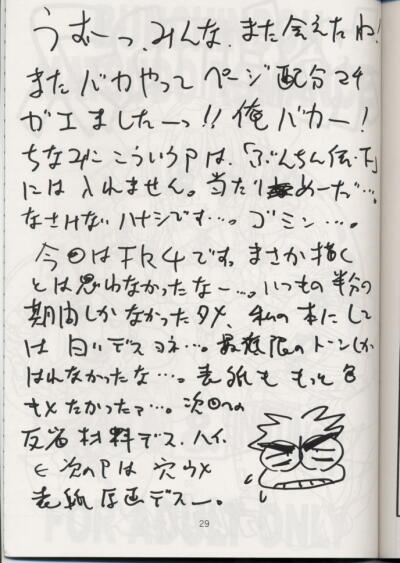 うむーっ、みんな、また会えたね!
またバカやってページ配分マチ
ガエましたーっ!!俺バカー!
ちなみにこういうPは、「ぶんちん伝・下」
には入れません。当たりめーだ…。
なさけないハナシです…。ゴミン…。
今回はFR4です。まさか描く
とは思わなかったなー…。いつもの半分の
期間しかなかったタメ、私の本にして
は白いデスヨネ…。最低限のトーンしか
はれなかったな…。表紙ももっと色
サメたかったって…。次回への
反省材料デス、ハイ。
← 次のPは穴ウメ
表紙原画デスー。
29